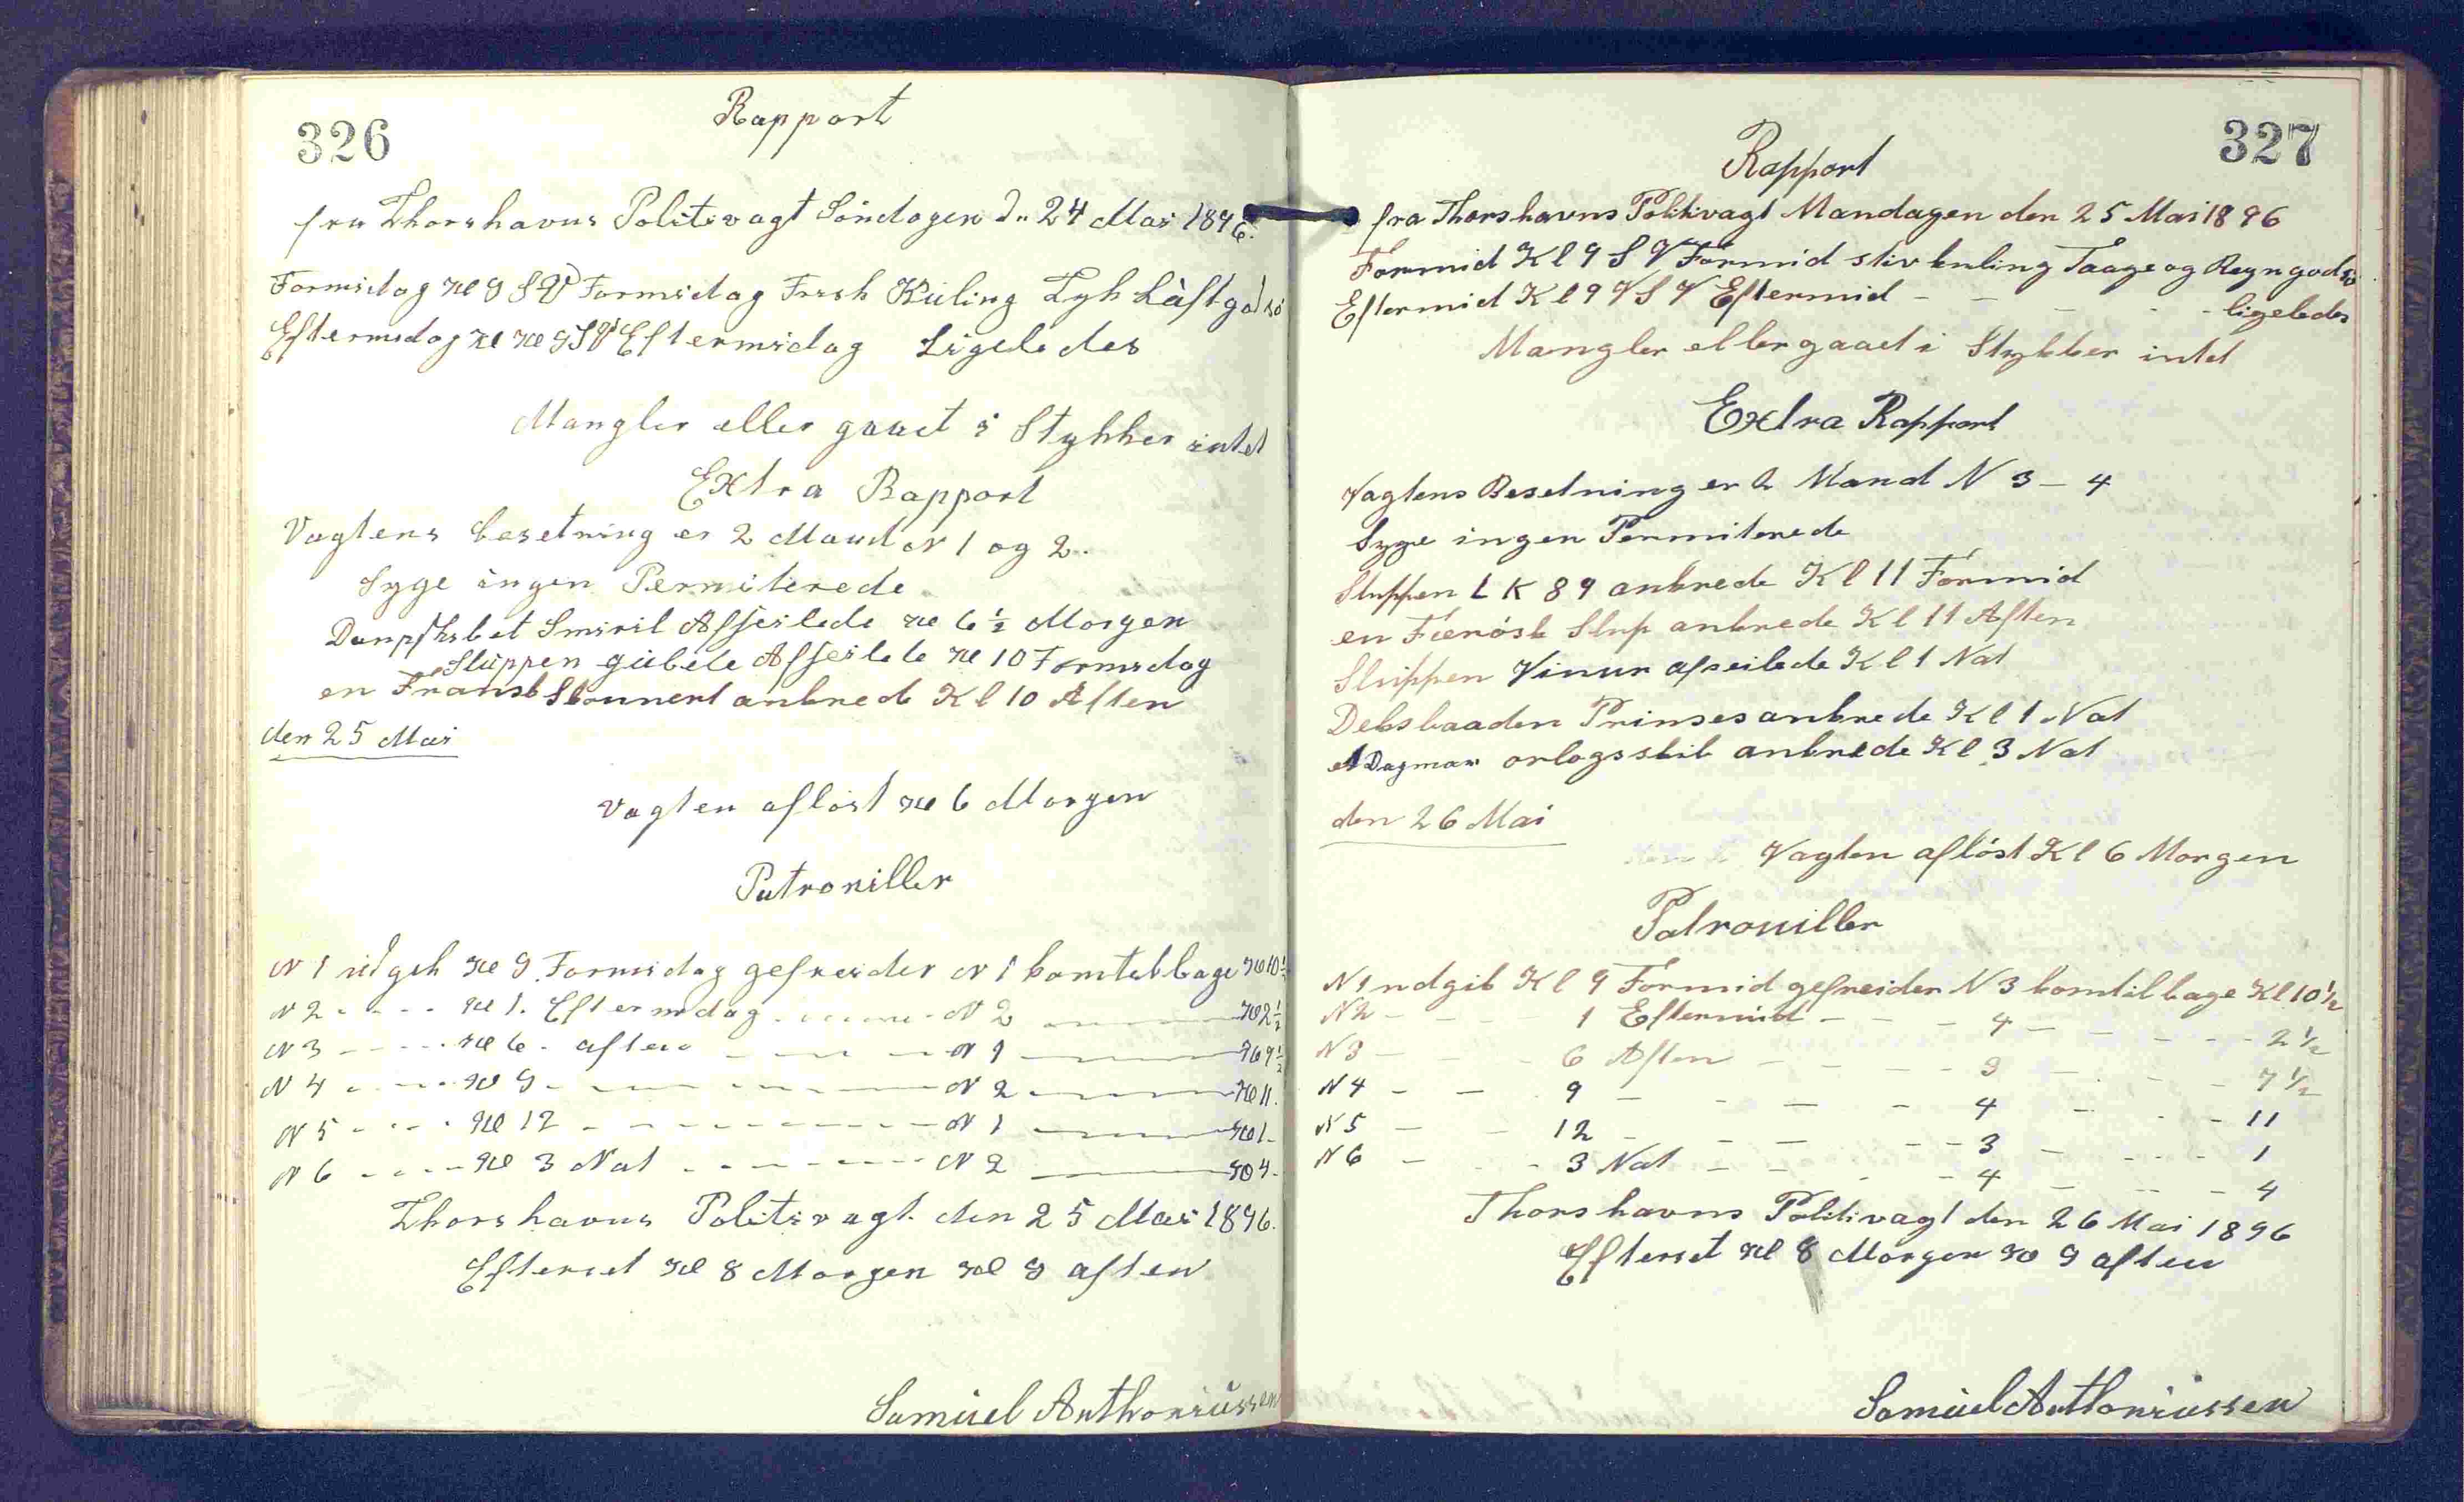 326
Rapport
fra Thorshavns Politivagt Söndagen d. 24 Mai 1896.
Formidag Kl 9 SV Formidag Frish Kuling Tyk Luft god
Eftermidag Kl Kl 9 SV Eftermidag Ligeledes
Mangler eller gaaet i Stykker intet
Extra Rapport
Vagtens besetning er 2 Mand N 1 og 2.
Syge ingen Permiterede
Dampskibet Smiril Afseilede Kl 6 ½ Morgen
Sluppen Afseilede Kl 10 Formidag
en Fransk Skonnert ankrede Kl 10 Aften
den 25 Mai
Vagten aflöst Kl 6 Morgen
Patroniller
N 1 udgik Kl 9 Formidag gefreider N 1 komtilbage Kl 10 ½
N 2 - - - - Kl 1. Eftermidag - - - - N 2 - - - - Kl 2 ½
N 3 - - - - Kl 6 - aften - - - - N 1 - - - - Kl 7 ½
N 4 - - - - Kl 9 - - - - N 2 - - - - Kl 11.
N 5 - - - - Kl 12 - - - - N 1 - - - - Kl 1.
N 6 - - - - Kl 3 Nat - - - - N 2 - - - - Kl 4.
Thorshavns Politivagt den 25 Mai 1896.
Efterset Kl 8 Morgen Kl 9 aften
Samuel Anthoniussen
327
Rapport
fra Thorshavns Politivagt Mandagen den 25 Mai 1896
Formid Kl 9 S V Formid stiv kuling Taage og Regn god
Eftermid Kl 9 V S V Eftermid - - - - ligeledes
Mangler eller gaaet i Stykker intet
Extra Rapport
Vagtens Besetning er 2 Mand N 3 - 4
Syge ingen Permiterede
Sluppen L K 89 ankrede Kl 11 Formid
en Færösk Slup ankrede Kl 11 Aften
Sluppen Vinur afseilede Kl 1 Nat
Deksbaaden Prinses ankrede Kl 1 Nat
Dagmar orlogsskib ankrede Kl 3 Nat
den 26 Mai
Vagten aflöst Kl 6 Morgen
Patrouiller
N 1 udgik Kl 9 Formid gefreider N 3 komtilbage Kl 10 ½
N 2 - - - - 1 Eftermid - - - - 4 - - - - 2 ½
N 3 - - - - 6 Aften - - - - 3 - - - - 7 ½
N 4 - - - - 9 - - - - 4 - - - - 11
N 5 - - - - 12 - - - - 3 - - - - 1
N 6 - - - - 3 Nat - - - - 4 - - - - 4
Thorshavns Politivagt den 26 Mai 1896
Efterset Kl 8 Morgen Kl 9 aften
Samuel Anthoniussen